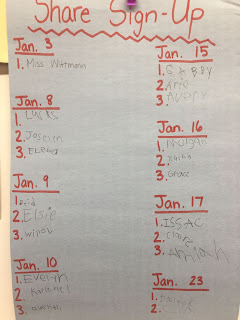 Share Sign-Up
Jan. 3
1. Miss Wittmann
Jan. 8
1. Lucas
2. Joselin
3.
Jan. 9
1.
2. Elsie
3.
Jan. 10
1. Evelyn
2.
3.
Jan. 15
1. GABBY
2. Aria
3. Avery
Jan. 16
1. Morgan
2.
3. Grace
Jan. 17
1. ISSAC
2. Claire
3.
Jan. 23
1.
2.